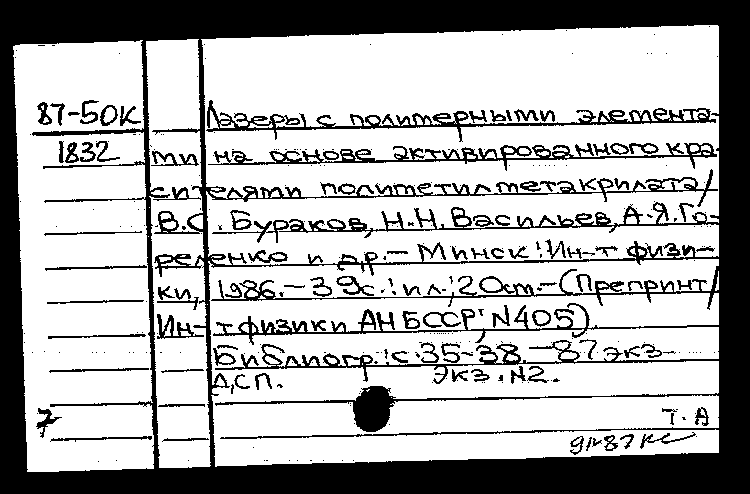 87-50К Лазеры с полимерными элемента-
1832 ми на основе активированного кра-
сителями полиметилметакрилата/
В.С. Бураков, Н.Н. Васильев, А.Я. Го-
реленко и др.- Минск: Ин-т физи-
ки, 1986.- 39с.: ил.; 20см.- (Препринт/
Ин-т физики АН БССР; N405)
Библиогр.: с. 35-38. - 87 экз
ДСП. Экз. N2.
7 Т. А